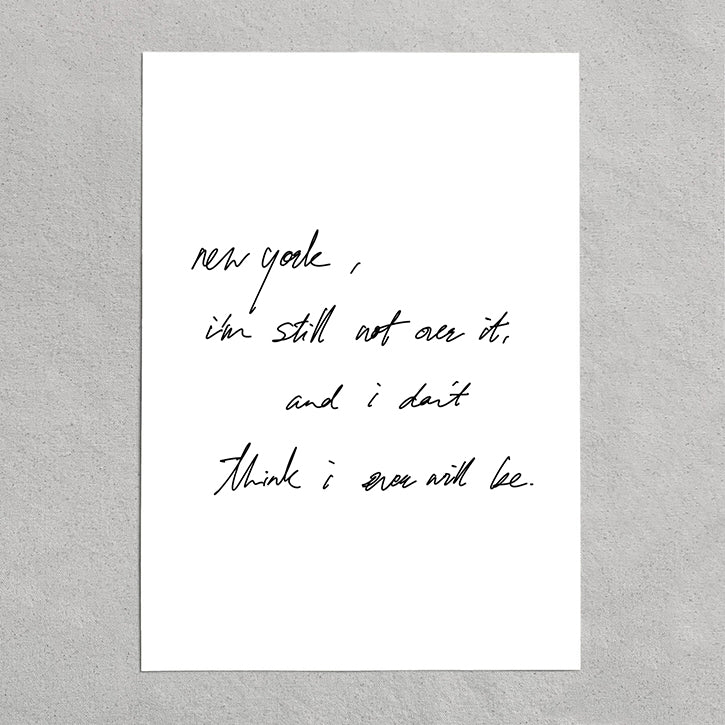 new york,
i'm still not over it,
and i don't
think i ever will be.